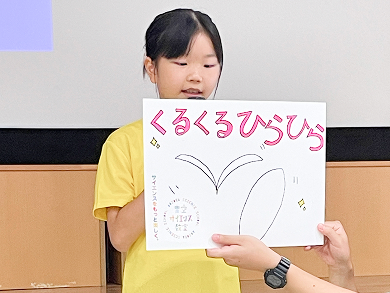 くるくるひらひら
サイエンスをもっと楽しく。
サイエンス